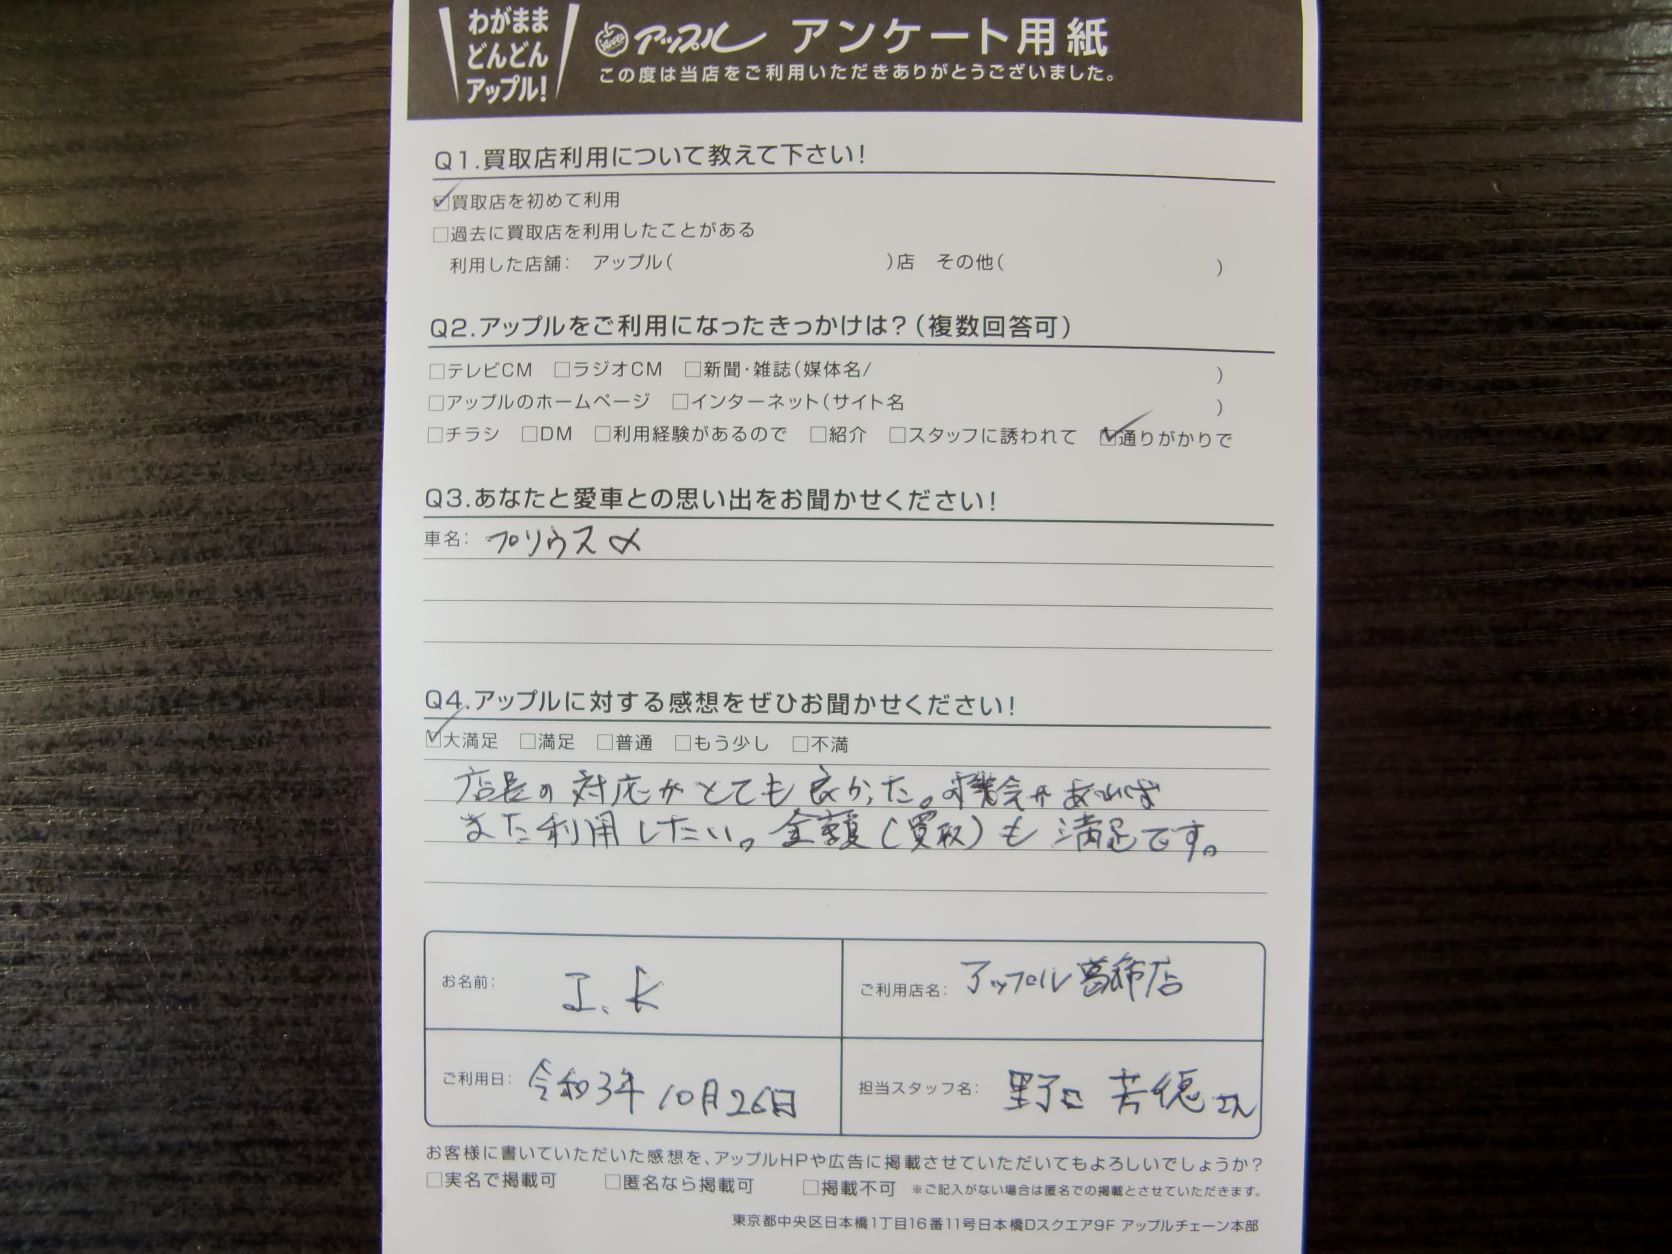 わがまま
どんどん
アップル!
アップル アンケート用紙
この度は当店をご利用いただきありがとうございました。
Q1.買取店利用について教えて下さい!
☑買取店を初めて利用
□過去に買取店を利用したことがある
利用した店舗: アップル( )店 その他( )
Q2.アップルをご利用になったきっかけは?(複数回答可)
□テレビCM □ラジオCM □新聞・雑誌(媒体名/ )
□アップルのホームページ □インターネット(サイト名 )
□チラシ □DM □利用経験があるので □紹介 □スタッフに誘われて ☑通りがかりで
Q3.あなたと愛車との思い出をお聞かせください!
車名: プリウスα
Q4.アップルに対する感想をぜひお聞かせください!
☑大満足 □満足 □普通 □もう少し □不満
店長の対応がとても良かった。機会があれば
また利用したい。金額(買取)も満足です。
お名前: I.K
ご利用店名: アップル葛飾店
ご利用日: 令和3年10月26日
担当スタッフ名: 野口 芳徳さん
お客様に書いていただいた感想を、アップルHPや広告に掲載させていただいてもよろしいでしょうか?
□実名で掲載可 □匿名なら掲載可 □掲載不可 ※ご記入がない場合は匿名での掲載とさせていただきます。
東京都中央区日本橋1丁目16番11号日本橋Dスクエア9F アップルチェーン本部